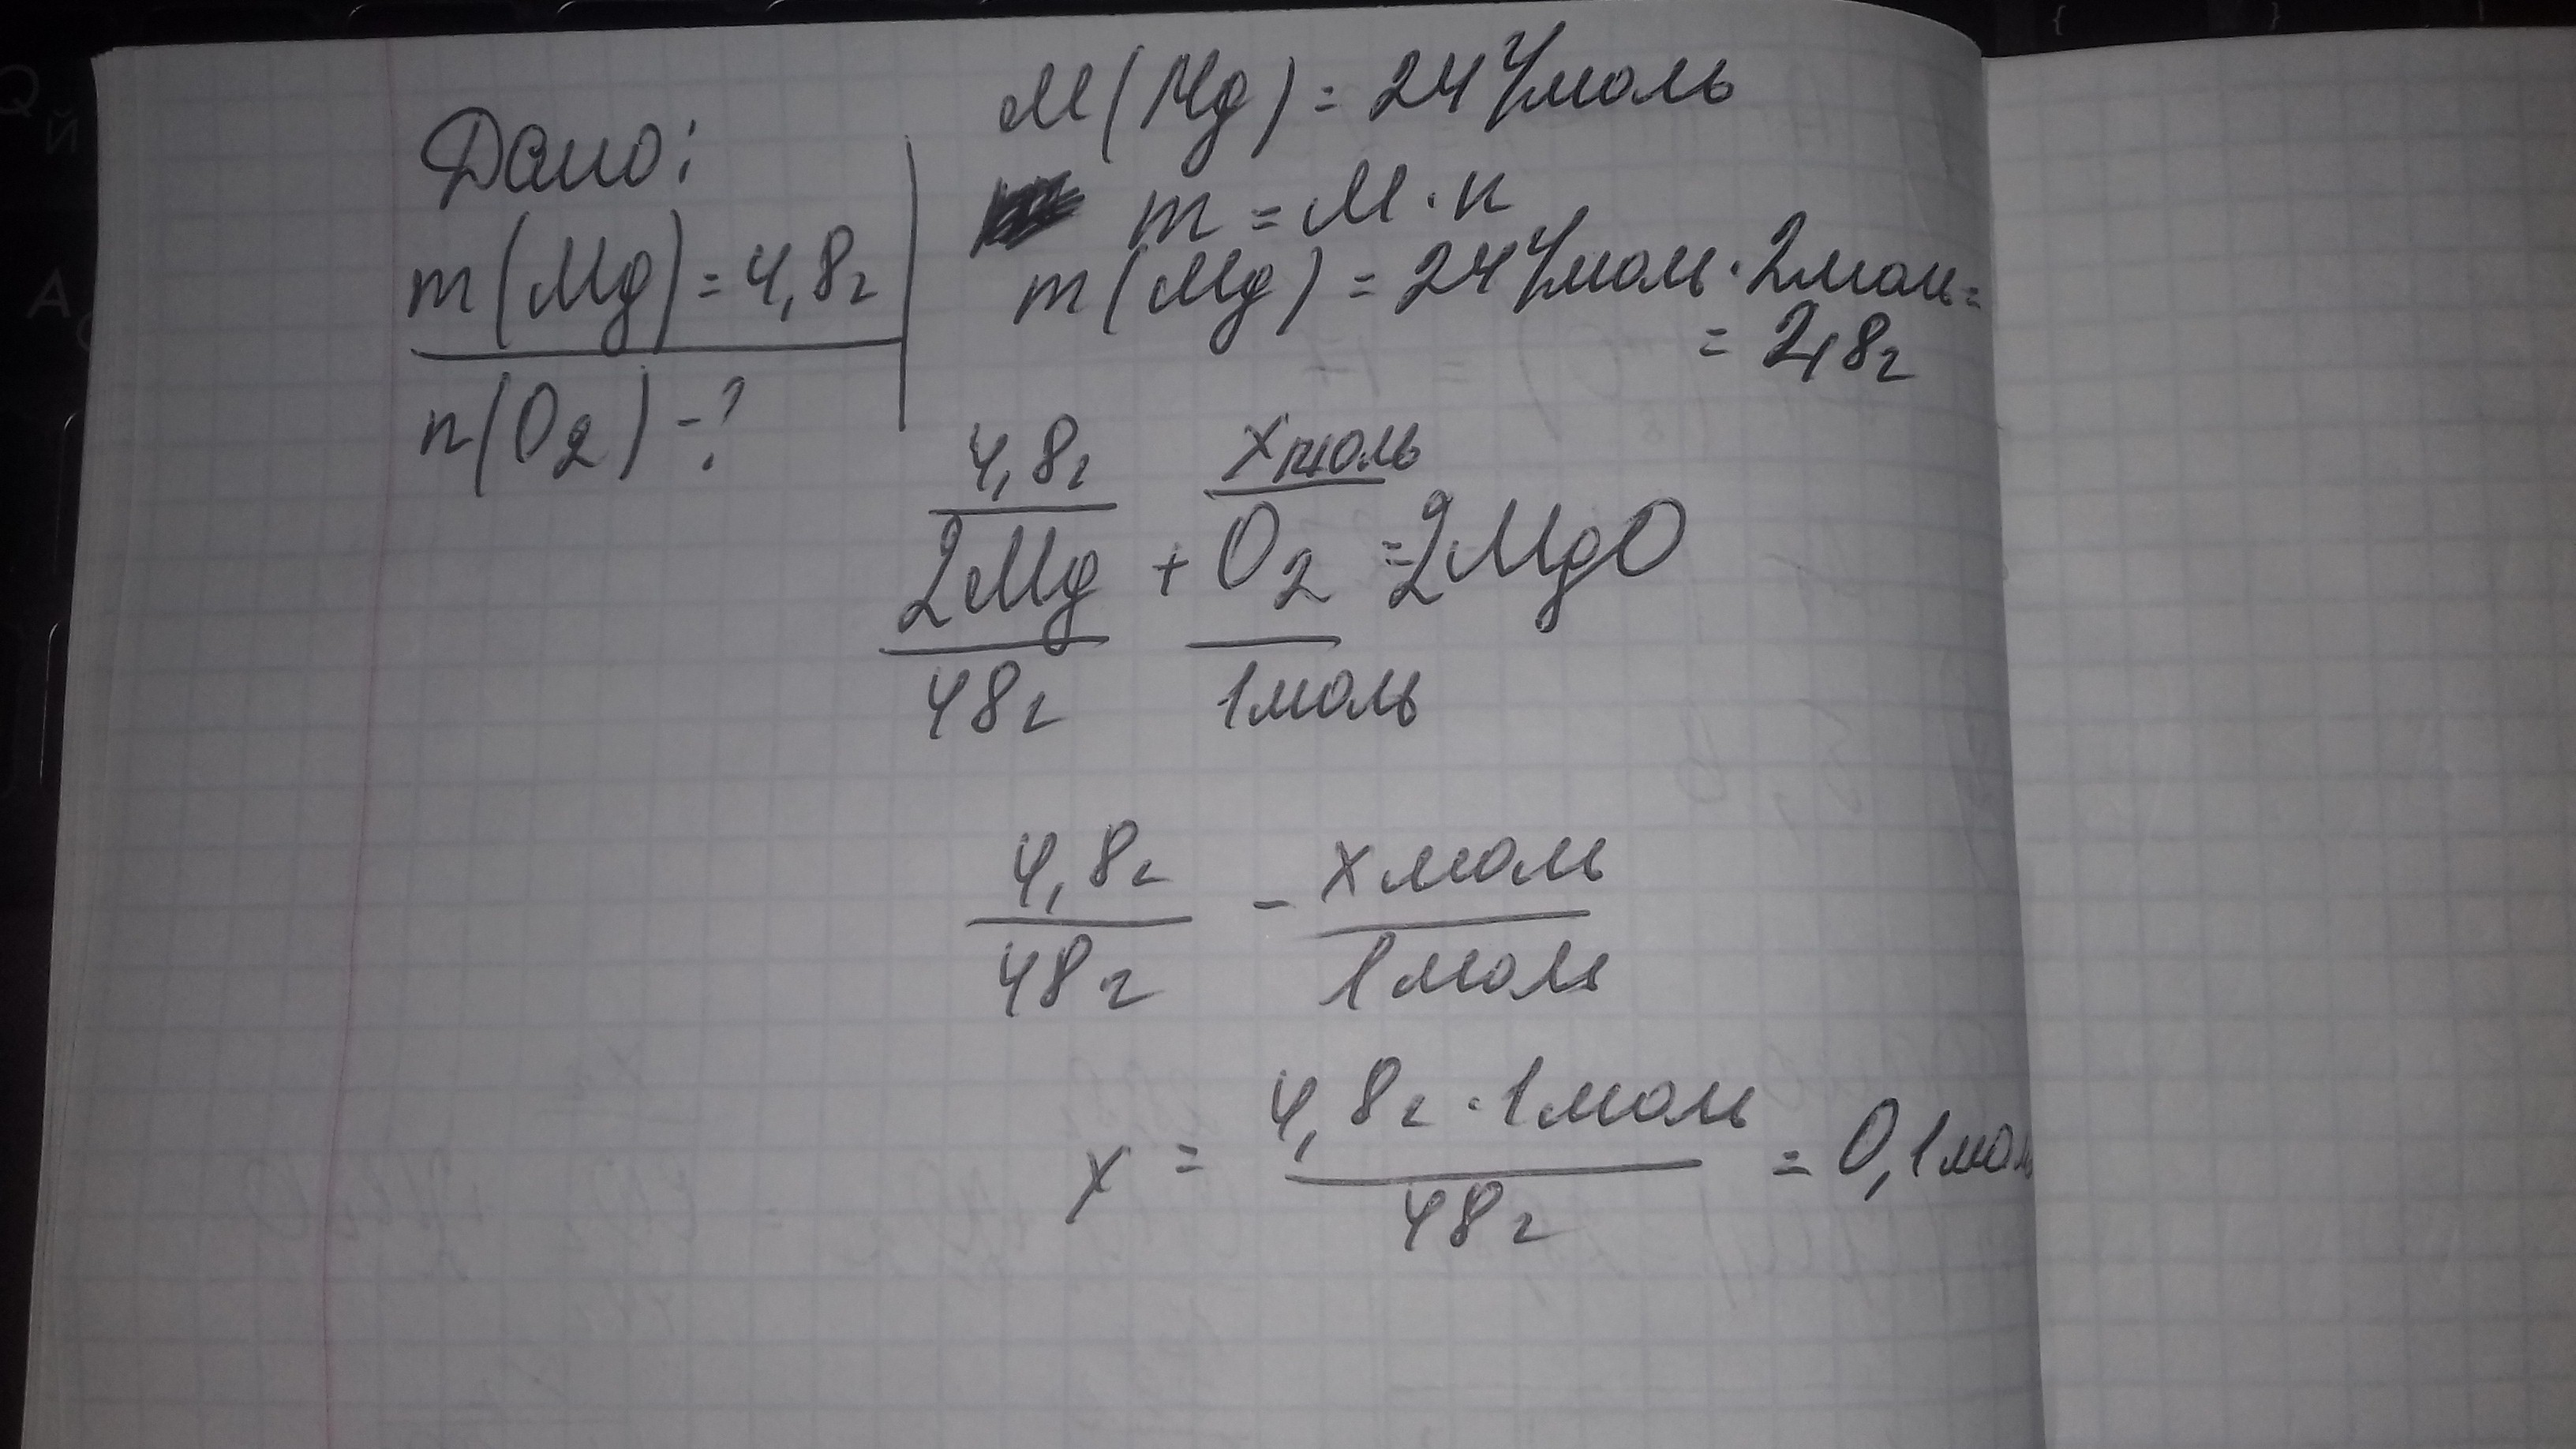 Дано:
m(Mg)=4,8г
n(O2)-?
M(Mg)=24 г/моль
m=M·n
m(Mg)=24 г/моль·2моль=
=2,8г
4,8г xмоль
2Mg + O2 =2MgO
48г 1моль
4,8г - xмоль
48г 1моль
x = 4,8г·1моль = 0,1мол
48г